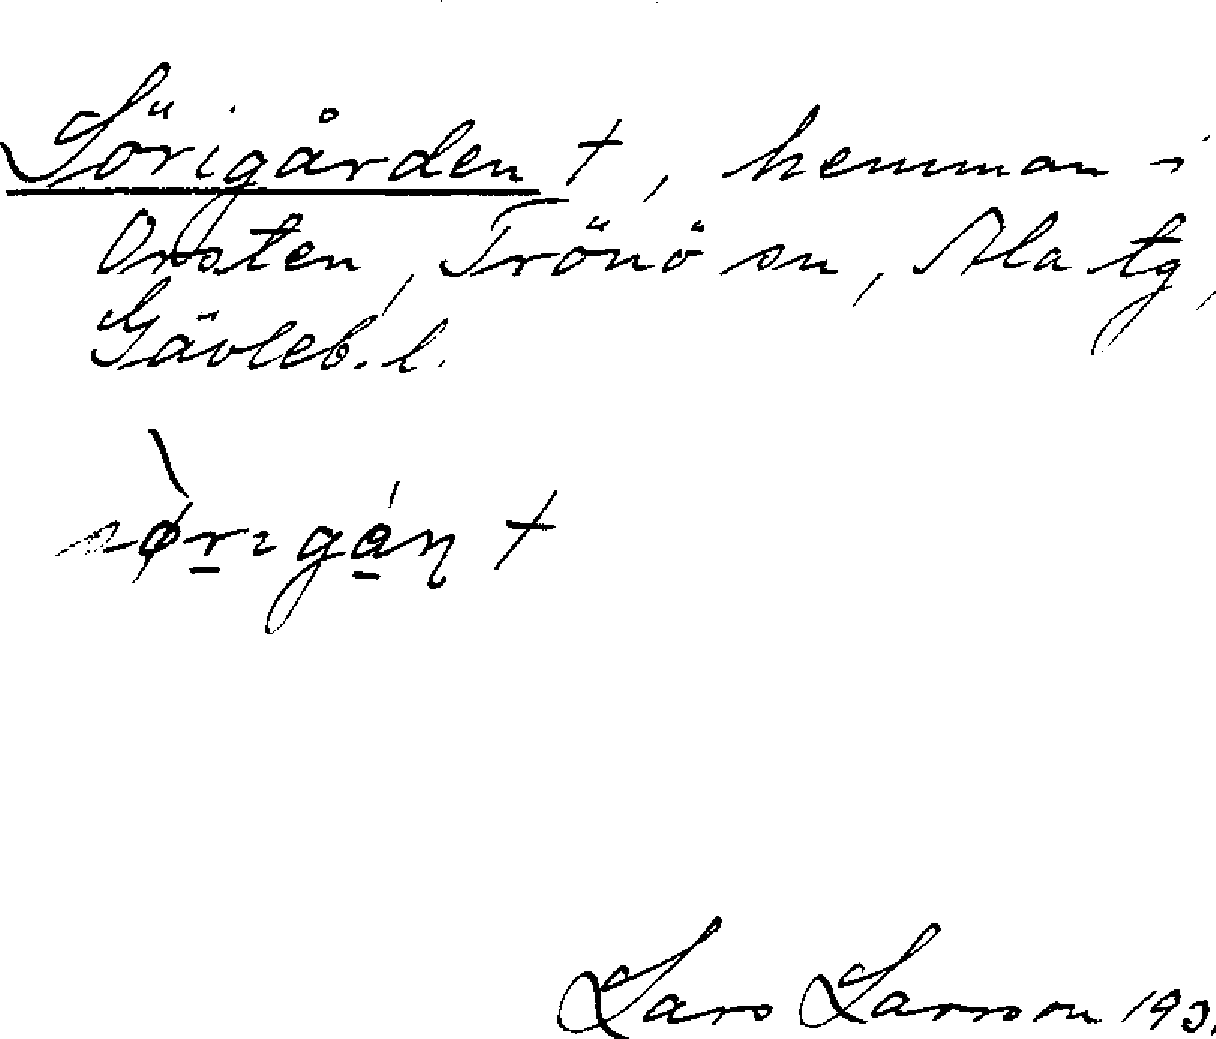 Sörigården +, hemman i
Onsten, Trönö sn, Ala tg,
Gävleb. l.
Lars Larsson 193